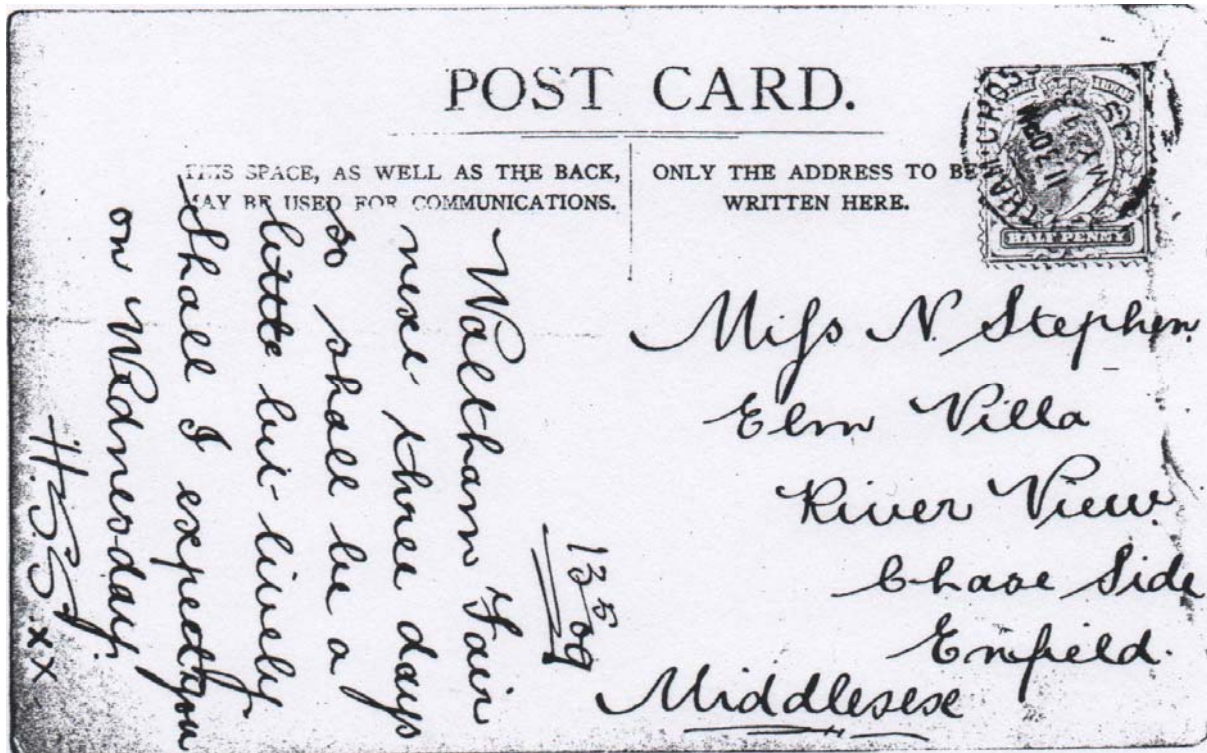 POST CARD.
THIS SPACE, AS WELL AS THE BACK,
MAY BE USED FOR COMMUNICATIONS.
ONLY THE ADDRESS TO BE
WRITTEN HERE.
THAM CROSS
11 30 PM
MY
HALF PENNY
13/5/09
Waltham Fair
next three days
so shall be a
little bit lively
Shall I expect you
on Wednesday.
H.S.S. xx
Miss N. Stephen
Elm Villa
River View
Chase Side
Enfield.
Middlesex